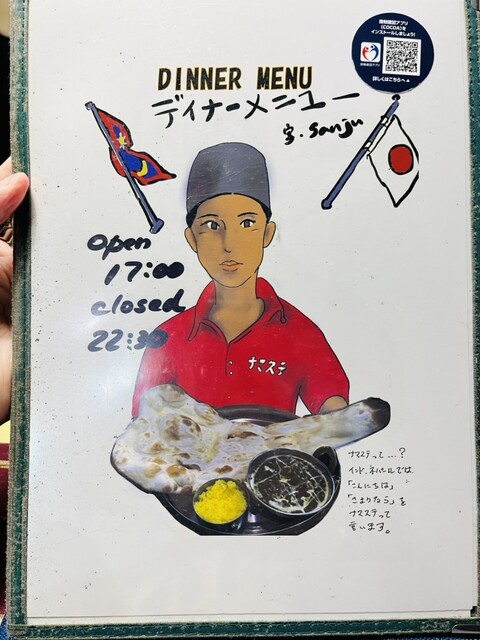 接触確認アプリ
(COCOA)を
インストールしましょう!
接触確認アプリ
詳しくはこちらへ
DINNER MENU
ディナーメニュー
Sanju
open
17:00
closed
22:30
ナマステ
ナマステって…?
インド、ネパールでは
「こんにちは」
「さようなら」を
ナマステって
言います。